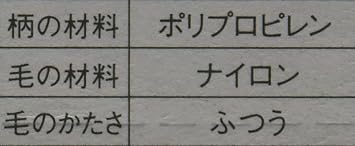 柄の材料 ポリプロピレン
毛の材料 ナイロン
毛のかたさ ふつう